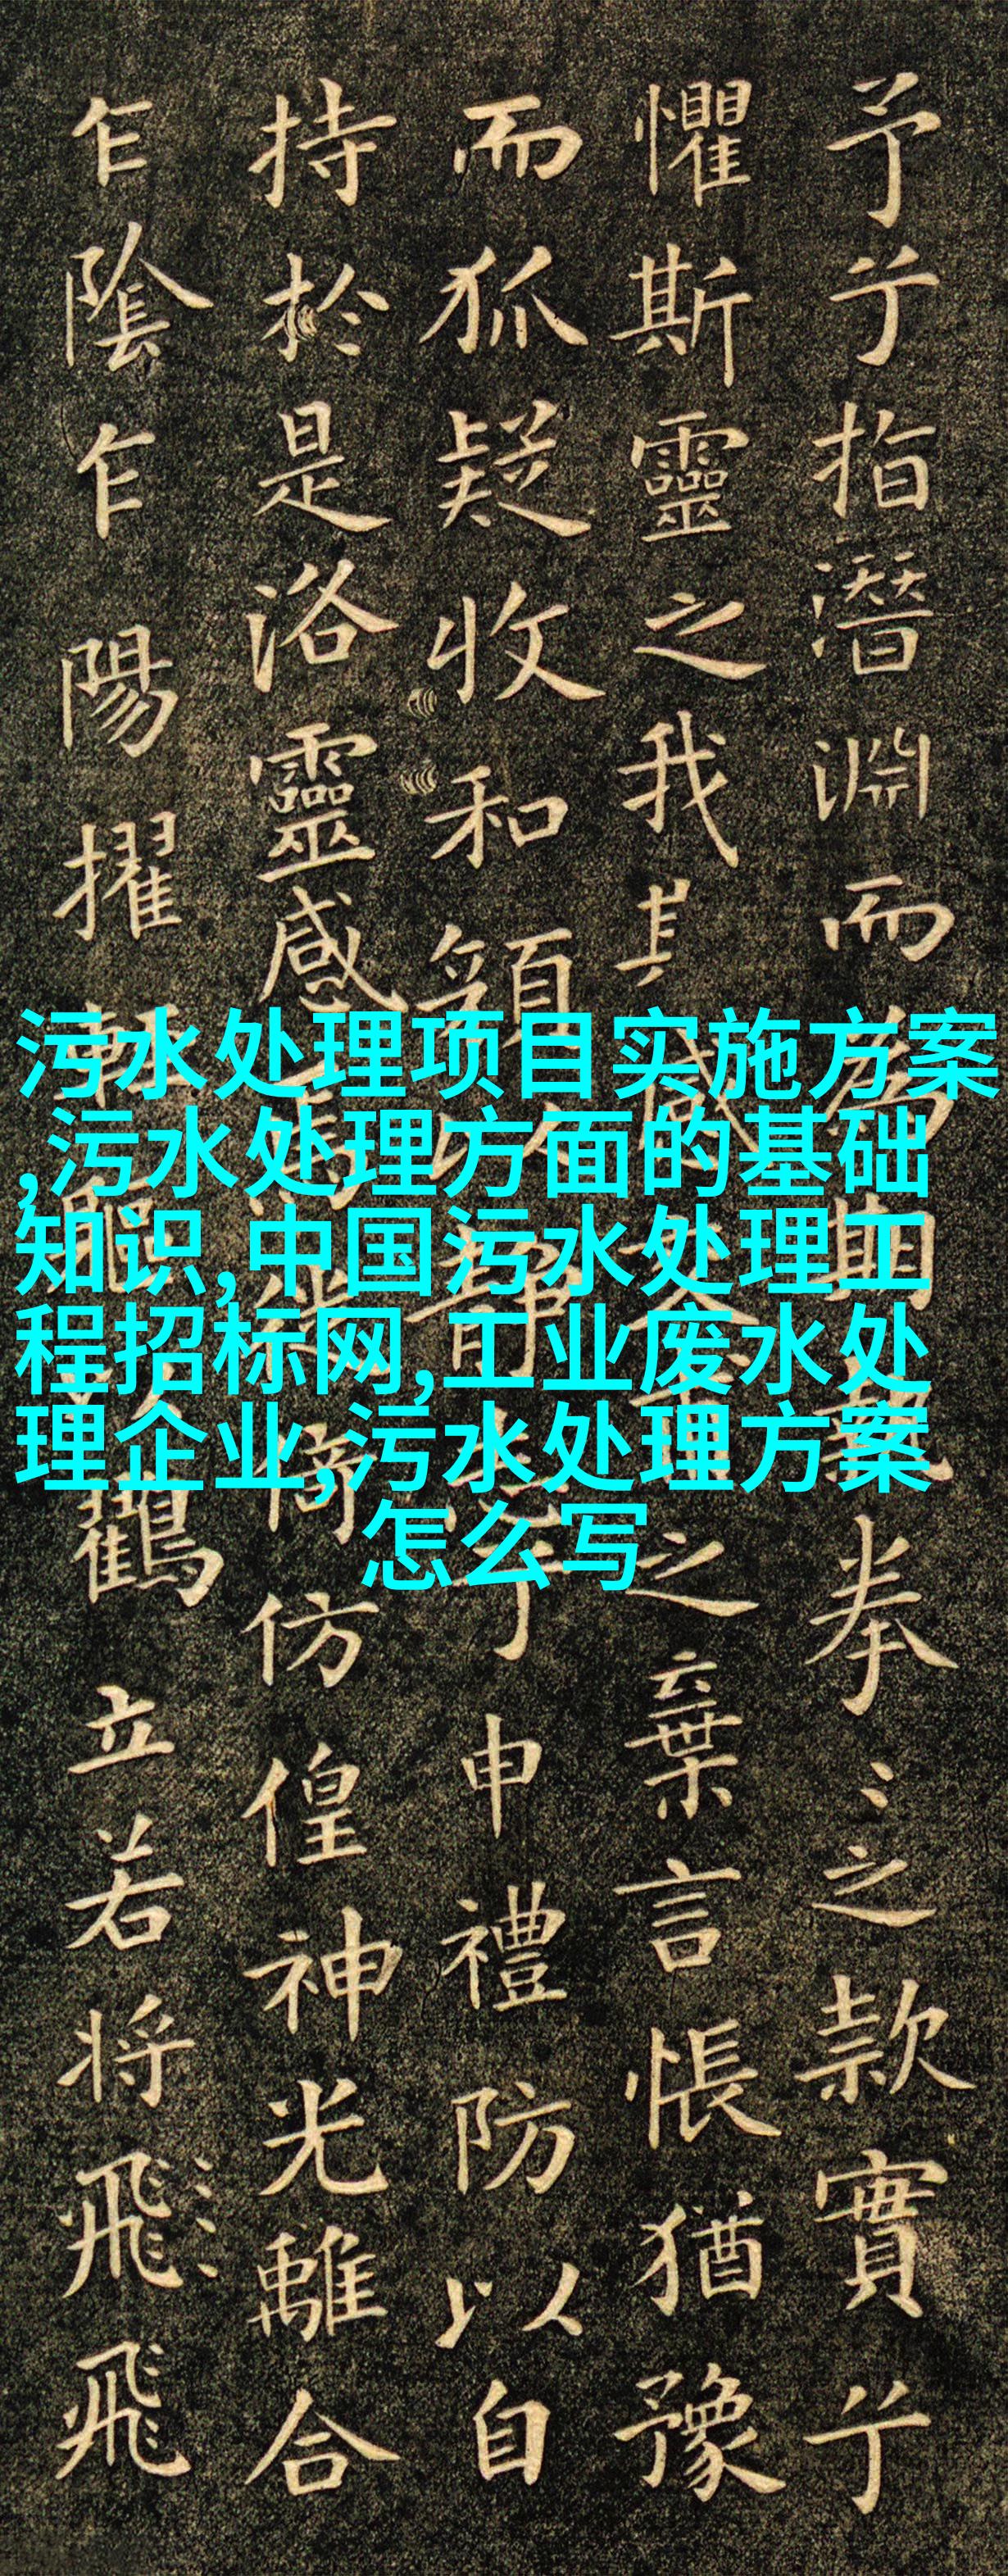 予兮指潛淵而拳〻之款實兮
懼斯靈之我之棄言悵猶豫
而狐疑收和顏兮申禮防以自
持於是洛靈感倚仿偟神光離合
乍陰乍陽擢鶴立若將飛飛
污水处理项目实施方案
,污水处理方面的基础
知识,中国污水处理工
程招标网,工业废水处
理企业,污水处理方案
怎么写